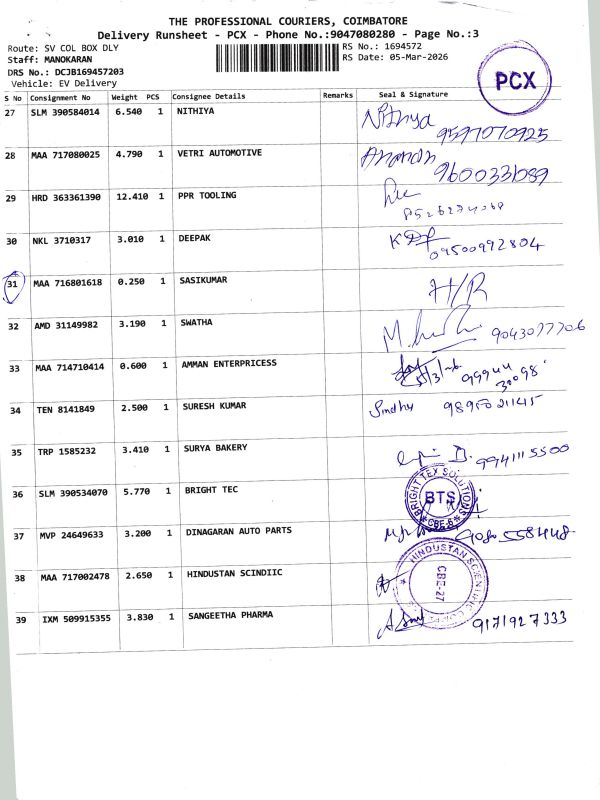 THE PROFESSIONAL COURIERS, COIMBATORE
Delivery Runsheet - PCX - Phone No.:9047080280 - Page No.:3
Route: SV COL BOX DLY
RS No.: 1694572
Staff: MANOKARAN
RS Date: 05-Mar-2026
DRS No.: DCJB169457203
Vehicle: EV Delivery
PCX
S No Consignment No Weight PCS Consignee Details Remarks Seal & Signature
27 SLM 390584014 6.540 1 NITHIYA Nithya
28 MAA 717080025 4.790 1 VETRI AUTOMOTIVE
29 HRD 363361390 12.410 1 PPR TOOLING
30 NKL 3710317 3.010 1 DEEPAK 09500992804
31 MAA 716801618 0.250 1 SASIKUMAR H/R
32 AMD 31149982 3.190 1 SWATHA 9043077706
33 MAA 714710414 0.600 1 AMMAN ENTERPRICESS
34 TEN 8141849 2.500 1 SURESH KUMAR Sindhu
35 TRP 1585232 3.410 1 SURYA BAKERY 9941115500
36 SLM 390534070 5.770 1 BRIGHT TEC BRIGHT TEX SOLUTIONS BTS CBE-6
37 MVP 24649633 3.200 1 DINAGARAN AUTO PARTS
38 MAA 717002478 2.650 1 HINDUSTAN SCINDIIC HINDUSTAN SCIENTIFIC CBE-27
39 IXM 509915355 3.830 1 SANGEETHA PHARMA 9171927333